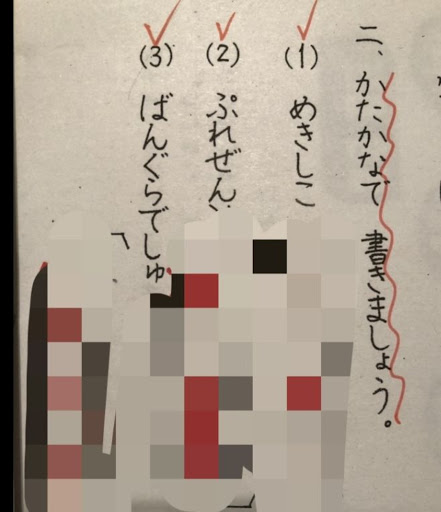 二、かたかなで 書きましょう。
(1) めきしこ
(2) ぷれぜん
(3) ばんぐらでしゅ